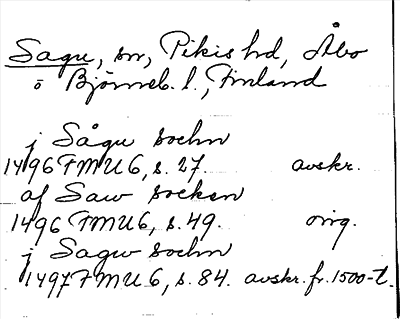 Sagu, sn, Pikis hd, Åbo
o Björneb. l., Finland
j Sågu sochn
1496 FMU 6, s. 27. avskr.
af Saw socken
1496 FMU 6, s. 49. orig.
j Sagw sochn
1497 FMU 6, s. 84. avskr. fr. 1500-t.